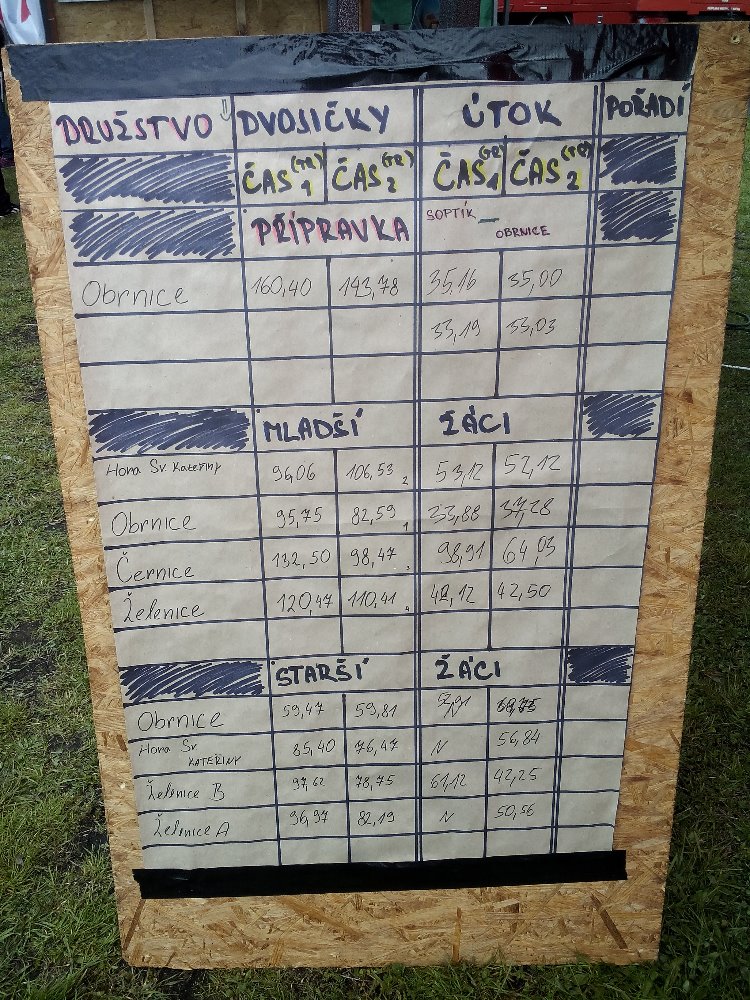 DRUŽSTVO DVOJIČKY ÚTOK POŘADÍ
ČAS 1 (TR) ČAS 2 (TR) ČAS 1 (TR) ČAS 2 (TR)
PŘÍPRAVKA SOPTÍK OBRNICE
Obrnice 160,40 143,78 35,16 35,00
33,19 33,03
MLADŠÍ ŽÁCI
Hora Sv Kateřiny 96,06 106,53 2 53,12 52,12
Obrnice 95,75 82,59 1 33,88 37,28
Černice 132,50 98,47 3 98,91 64,03
Želenice 120,47 110,41 4 42,50
STARŠÍ ŽÁCI
Obrnice 59,47 59,81 N
Hora Sv KATEŘINY 85,40 76,47 N 56,84
Želenice B 97,62 78,75 61,12 42,25
Želenice A 96,97 82,19 N 50,56